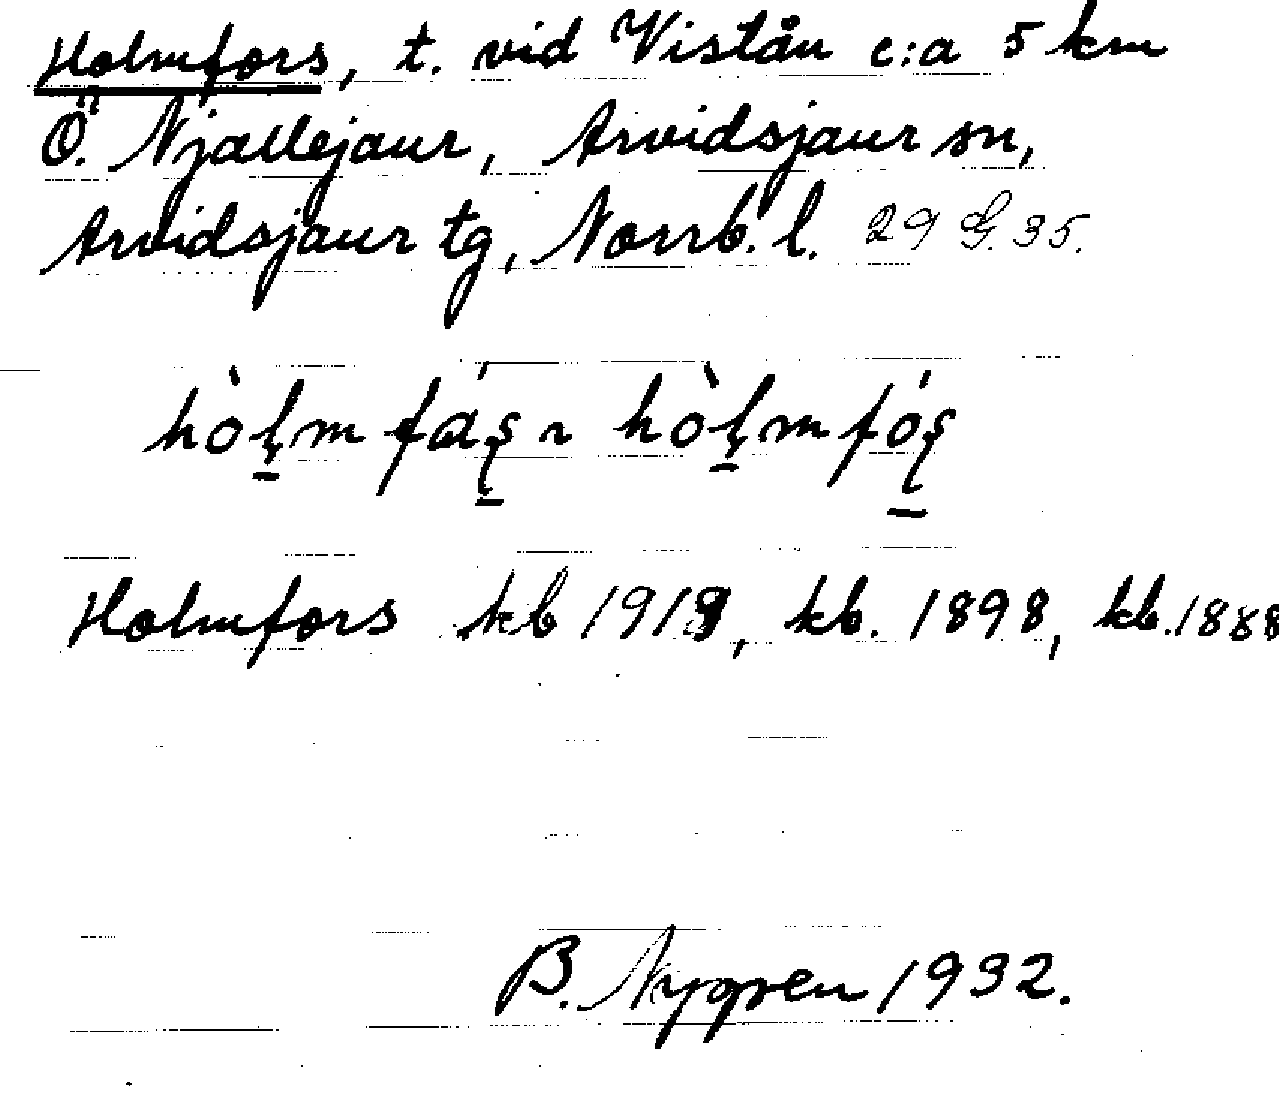 Holmfors, t. vid Viståu c:a 5 km
Ö. Njallejaur, Arvidsjaur sn,
Arvidsjaur tg, Norrb. l. 29 G. 35.
hòl̥m fáş ~ hòl̥m fóş
Holmfors kb 1918, kb. 1898, kb. 1888
B. Nygren 1932.